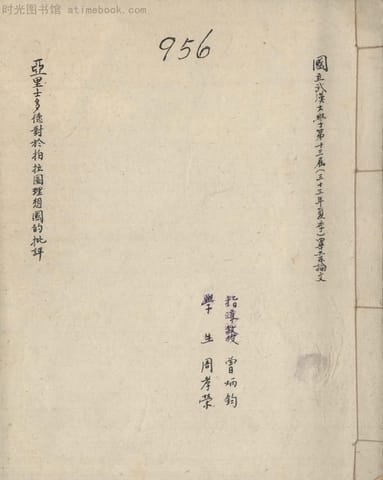 时光图书馆 - atimebook.com
956
國立武漢大學第十三屆(三十三年夏季)畢業論文
亞里士多德對於柏拉圖理想國的批評
指導教授 曾炳鈞
學生 周孝榮